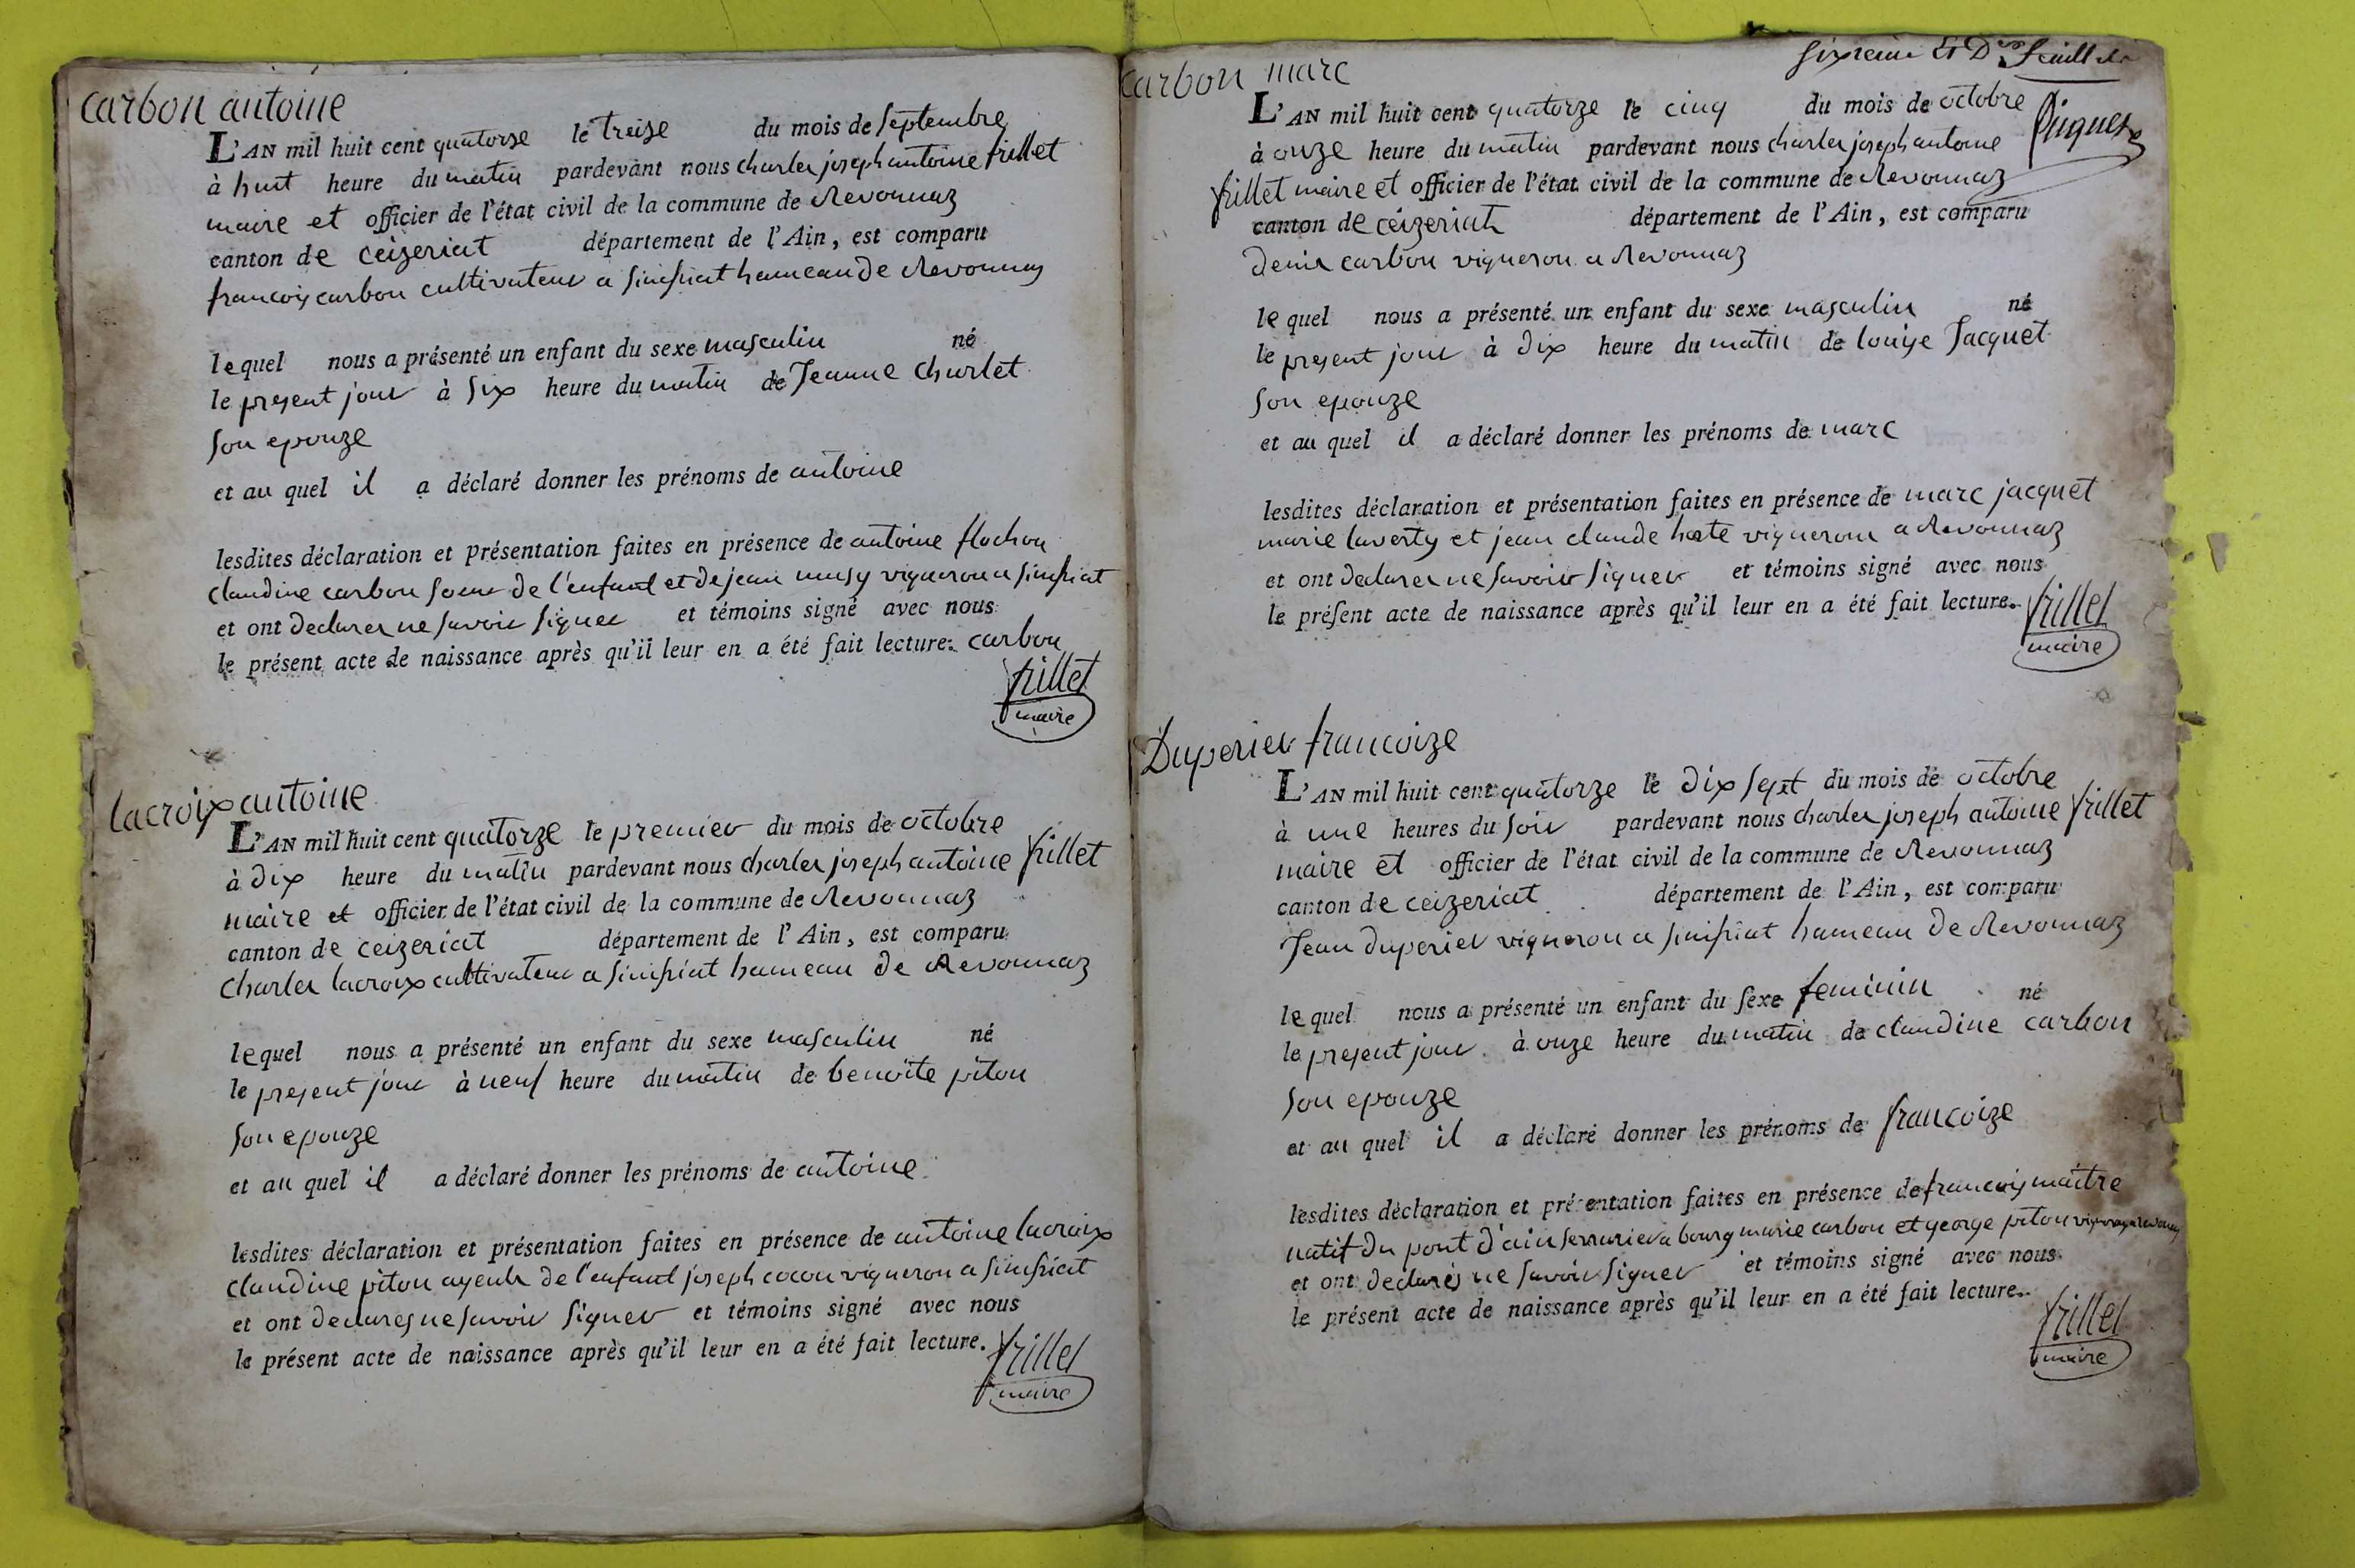 carbon antoine
L'AN mil huit cent quatorse le treise du mois de septembre
à huit heure du matin pardevant nous charles joseph antoine frillet
maire et officier de l'état civil de la commune de Revonnaz
canton de ceizeriat département de l'Ain, est comparu
francois carbon cultivateur a simsiat hameau de Revonnaz
lequel nous a présenté un enfant du sexe masculin né
le present jour à six heure du matin de Jeanne Churlet
son epouze
et au quel il a déclaré donner les prénoms de antoine
lesdites déclaration et présentation faites en présence de antoine flochon
claudine carbon soeur de l'enfant et de jean musy vigneron a simsiat
et ont declarer ne savoir signer et témoins signé avec nous
le présent acte de naissance après qu'il leur en a été fait lecture. carbon
frillet
maire
lacroix antoine
L'AN mil huit cent quatorze le premier du mois de octobre
à dix heure du matin pardevant nous charles joseph antoine frillet
maire et officier de l'état civil de la commune de Revonnaz
canton de ceizeriat département de l'Ain, est comparu
charles lacroix cultivateur a simsiat hameau de Revonnaz
lequel nous a présenté un enfant du sexe masculin né
le present jour à neuf heure du matin de benoite piton
son epouze
et au quel il a déclaré donner les prénoms de antoine
lesdites déclaration et présentation faites en présence de antoine lacroix
claudine piton ayeule de l'enfant joseph cocon vigneron a simsiat
et ont declares ne savoir signer et témoins signé avec nous
le présent acte de naissance après qu'il leur en a été fait lecture.
frillet
maire
sixieme Et Der feuillet
Piquet
carbon marc
L'AN mil huit cent quatorze le cinq du mois de octobre
à onze heure du matin pardevant nous charles joseph antoine
frillet maire et officier de l'état civil de la commune de Revonnaz
canton de ceizeriat département de l'Ain, est comparu
denis carbon vigneron a Revonnaz
lequel nous a présenté un enfant du sexe masculin né
le present jour à dix heure du matin de louise Jacquet
son epouze
et au quel il a déclaré donner les prénoms de marc
lesdites déclaration et présentation faites en présence de marc jacquet
marie laverty et jean claude hote vigneron a Revonnaz
et ont declarer ne savoir signer et témoins signé avec nous
le présent acte de naissance après qu'il leur en a été fait lecture.
frillet
maire
Duperier francoize
L'AN mil huit cent quatorze le dix sept du mois de octobre
à une heures du soir pardevant nous charles joseph antoine frillet
maire et officier de l'état civil de la commune de Revonnaz
canton de ceizeriat département de l'Ain, est comparu
Jean duperier vigneron a simsiat hameau de Revonnaz
lequel nous a présenté un enfant du sexe feminin né
le present jour à onze heure du matin de claudine carbon
son epouze
et au quel il a déclaré donner les prénoms de francoize
lesdites déclaration et présentation faites en présence de francois maitre
natif du pont d'ain serrurier a bourg marie carbon et george piton vigneron a Revonnaz
et ont declarés ne savoir signer et témoins signé avec nous
le présent acte de naissance après qu'il leur en a été fait lecture.
frillet
maire